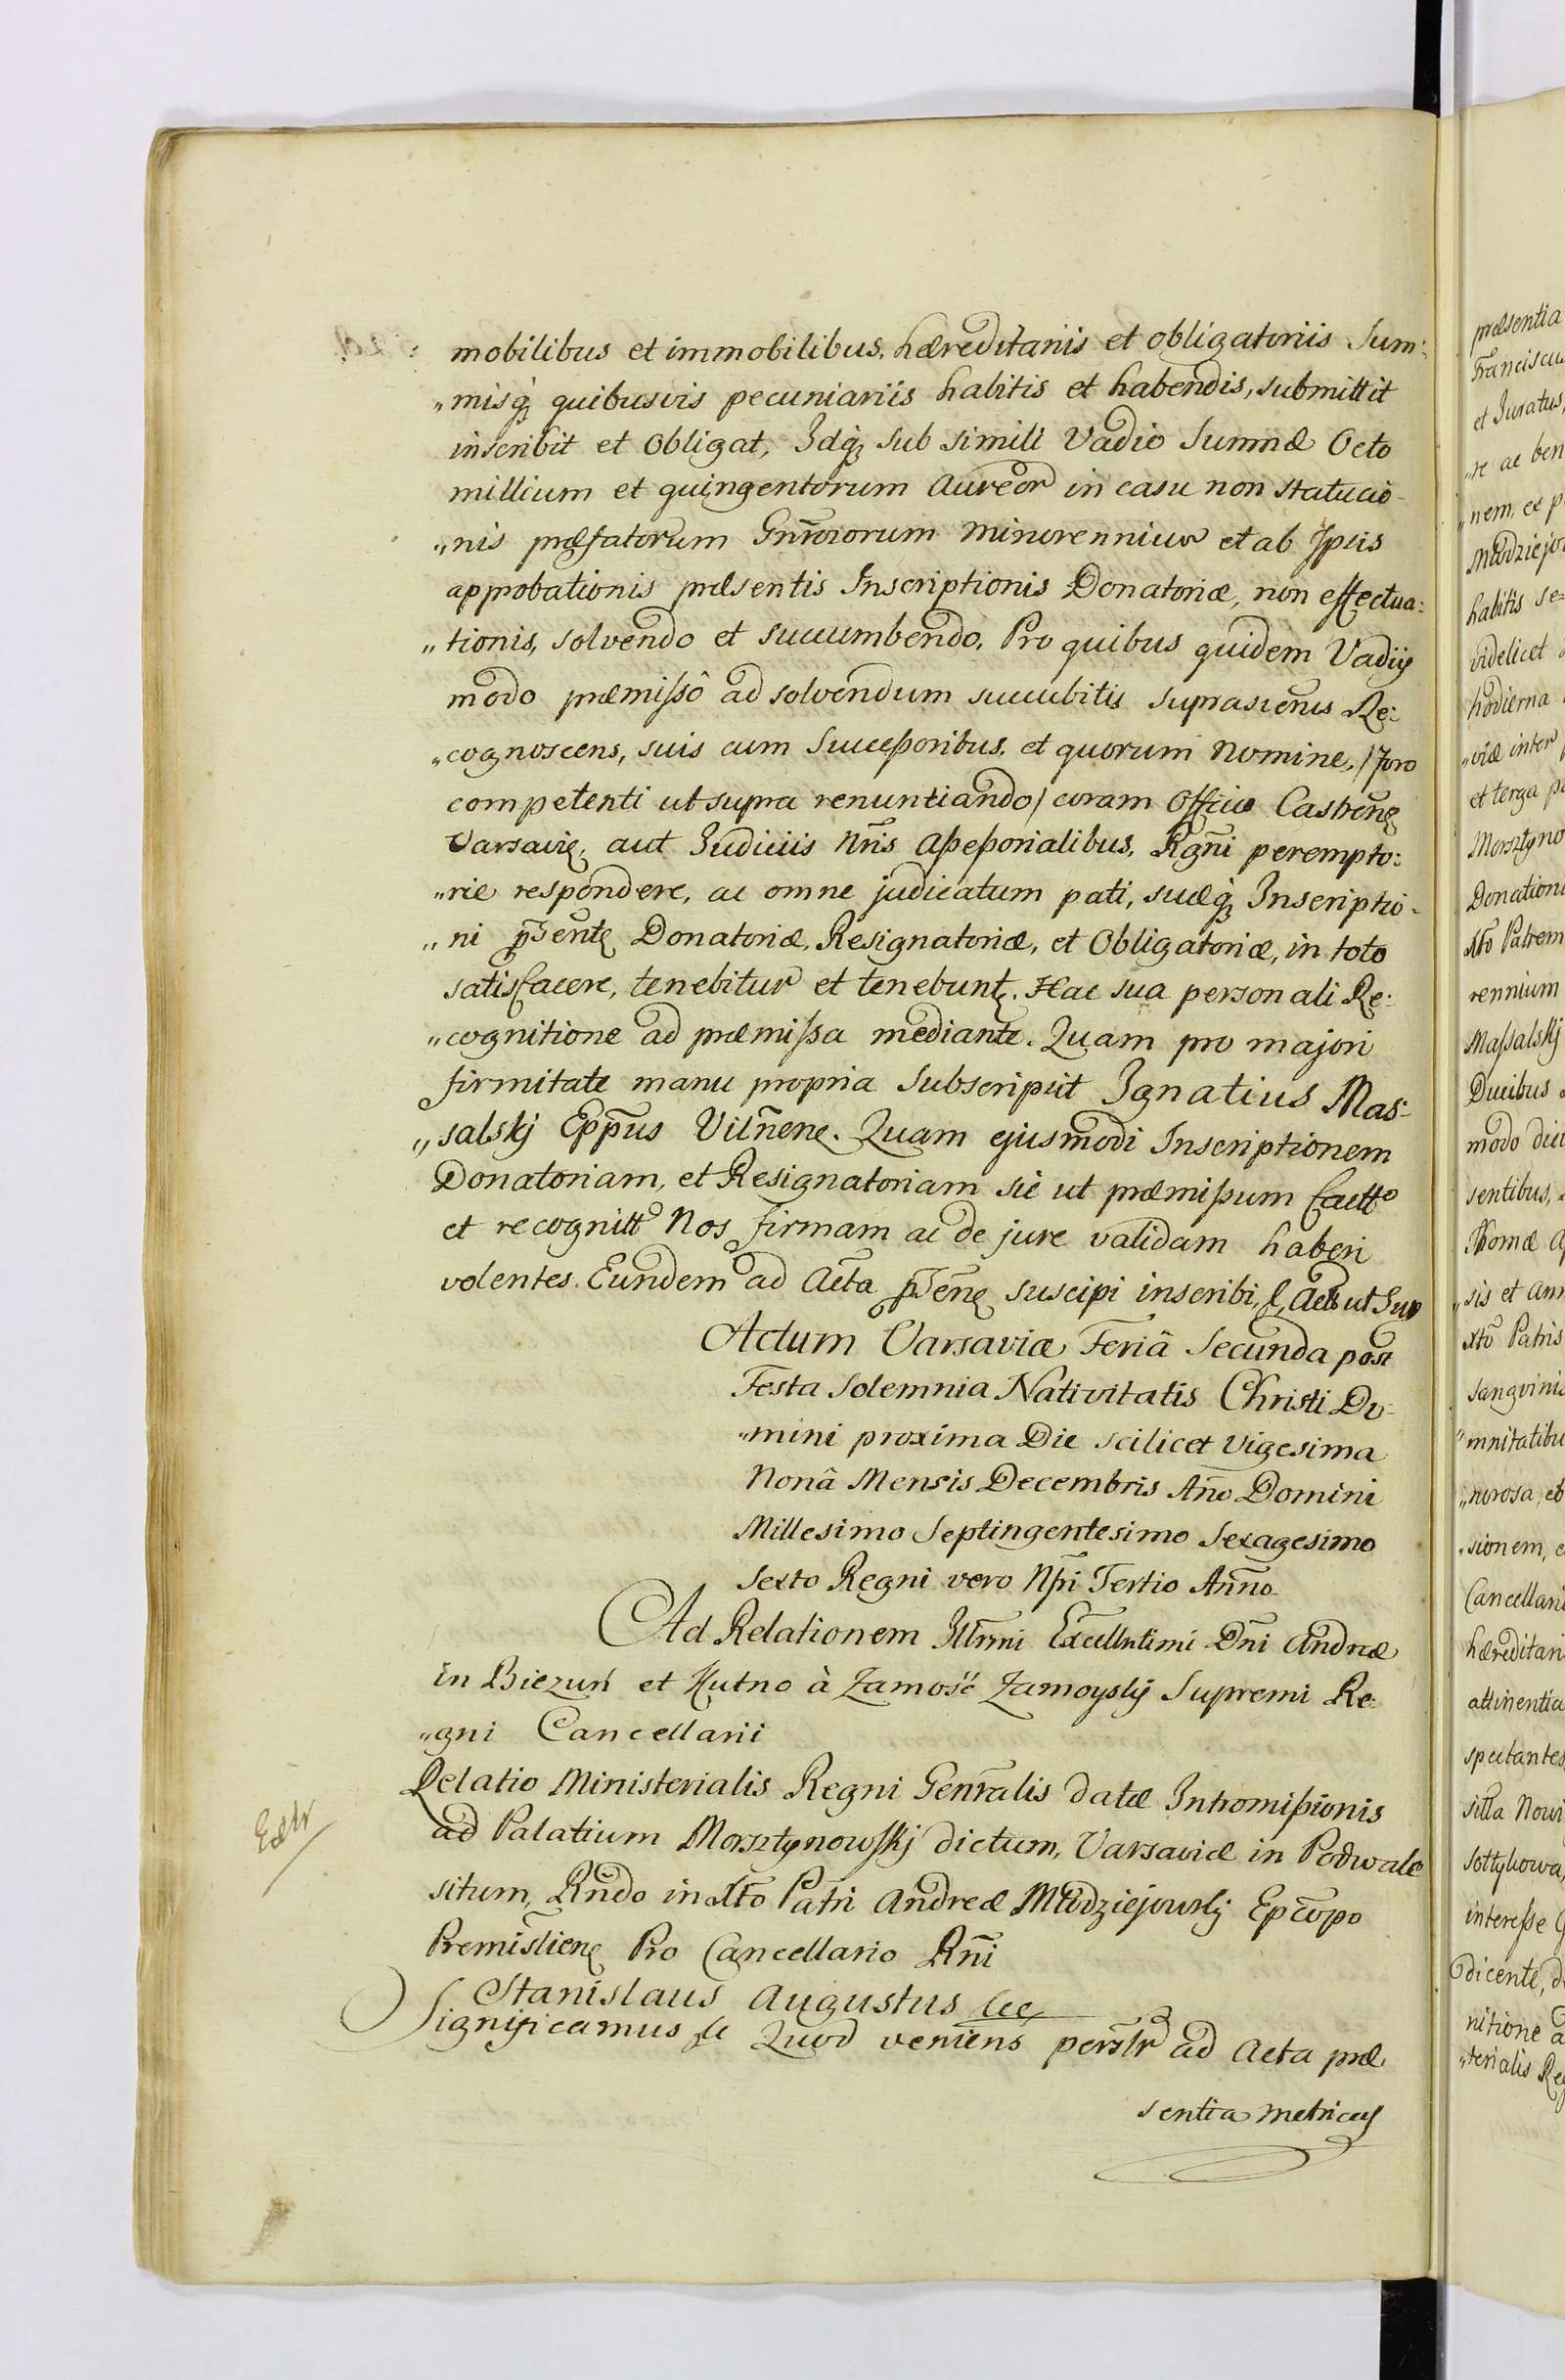 mobilibus et immobilibus, hæreditariis et obligatoriis Sum:
„misq́ quibusvis pecuniariis habitis et habendis, submittit
inscribit et obligat, Idq́ sub simili Vadio Summæ Octo
millium et quingentorum Aureor̃ in casu non statucio-
„nis præfatorum Gnr̃osorum Minorennium et ab Ipsis
approbationis præsentis Inscriptionis Donatoriæ, non effectua:
„tionis, solvendo et succumbendo. Pro quibus quidem Vadijs
modo præmissô ad solvendum succubitis suprascreñs Re:
„cognoscens, suis cum Successoribus, et quorum Nomine, /Foro
competenti ut supra renuntiando/ coram Officio Castreñ
Varsavię, aut Judiciis Nr̃is Assessorialibus, Rgñi perempto:
„rie respondere, ac omne judicatum pati, suæq́ Inscriptio-
„ni p̃sentę Donatoriæ, Resignatoriæ, et Obligatoriæ, in toto
satisfacere, tenebitur et tenebunt. Hac sua personali Re:
„cognitione ad præmissa mediante. Quam pro majori
firmitate manu propria Subscripsit Ignatius Mas:
„salskj Epp̃us Vilñenę. Quam ejusmodi Inscriptionem
Donatoriam, et Resignatoriam sic ut præmissum factt͠o
et recognitt͠o Nos firmam ac de jure validam haberi
volentes. Eundem ad Acta p̃señ suscipi inscribi, &, Actt ut Sup
Actum Varsaviæ Feriâ Secunda post
Festa Solemnia Nativitatis Christi Do:
„mini proxima Die scilicet Vigesima
Nonâ Mensis Decembris Añno Domini
Millesimo Septingentesimo Sexagesimo
Sexto Regni vero Nr̃i Tertio Añno
Ad Relationem Illr̃mi Excellntimi Dñi Andreæ
in Biezuń et Kutno à Zamość Zamoyskj Supremi Re:
„gni Cancellarii
Relatio Ministerialis Regni Genr̃alis datæ Intromissionis
Extr
ad Palatium Morsztynowskj dictum, Varsaviæ in Podwale
situm, Rñdo in Xt͠o Patri Andreæ Młodziejowskj Epc͠opo
Premislieñ Pro Cancellario Rñi
Stanislaus Augustus &c,
Significamus &c Quod veniens persltr̃ ad Acta præ,
sentia Metrices
præsentia
Franciscus
et Juratus,
„re ac ben
„nem, ex p
Młodziejow
habitis se=
videlicet
hodierna
„viæ inter
et terga pa
Morsztyno
Donation
Xt͠o Patrem
rennium
Massalskj
Ducibus
modo dict
sentibus,
Romæ
„sis et Ann
Xt͠o Patris
sangvinis
„mnitatibu
„norosa, et
„sionem, e
Cancellari
hæreditari
attinentia
spectantes
silla Nowi
Sołtykowa,
interesse
dicente, d
nitione a
„terialis Reg